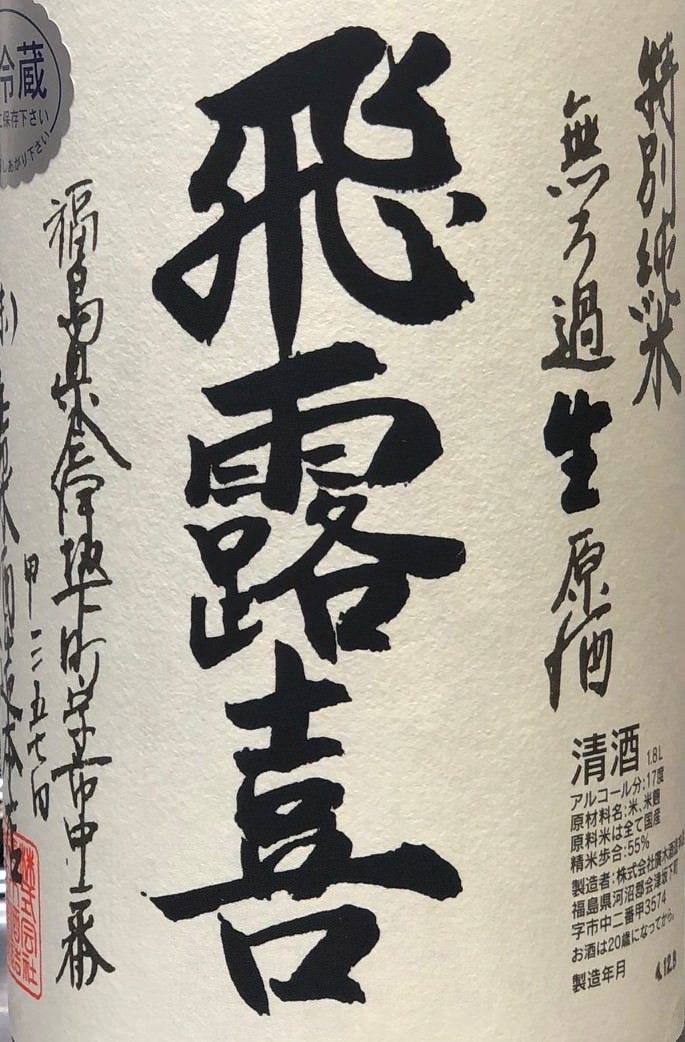 特別純米
無ろ過生原酒
飛露喜
福島県会津坂下町字市中二番
甲三五七四
冷蔵
保存下さい
しあがり下さい
清酒 1.8L
アルコール分:17度
原材料名:米、米麹
原料米は全て国産
精米歩合:55%
製造者:株式会社廣木酒造本店
福島県河沼郡会津坂下町
字市中二番甲3574
お酒は20歳になってから。
製造年月 4.12.9
株式会社